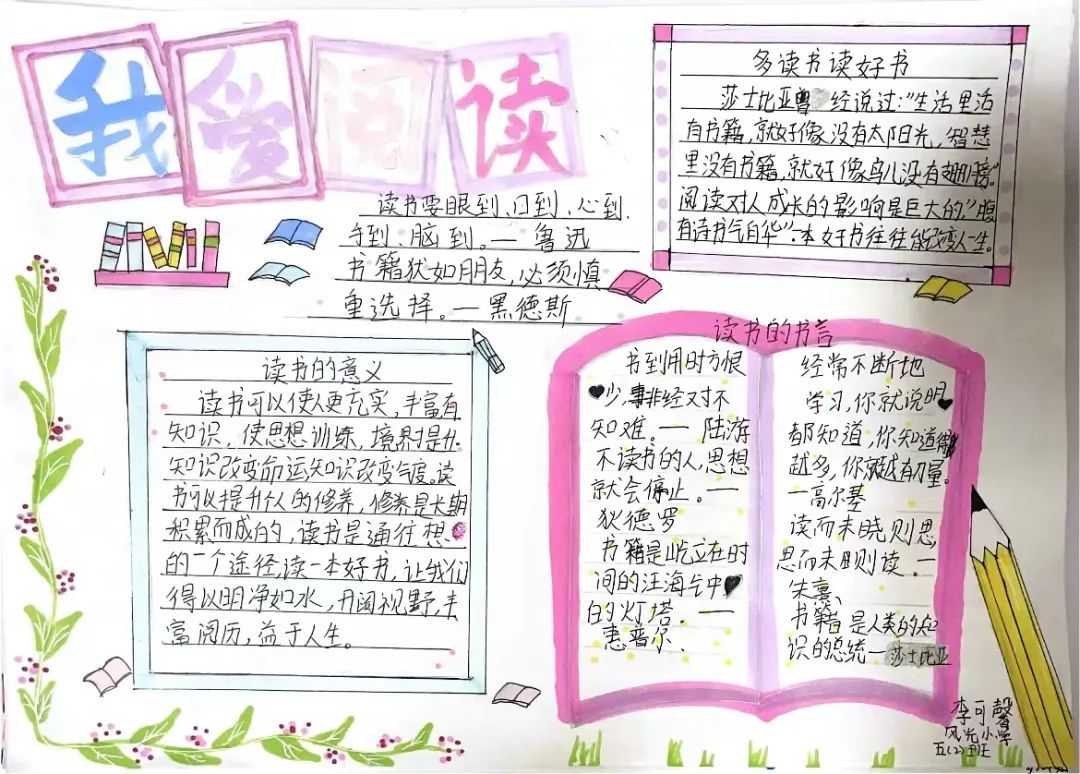 我爱阅读
多读书读好书
莎士比亚曾经说过:"生活里活
有书籍,就好像没有太阳光,智慧
里没有书籍,就好像鸟儿没有翅膀"。
阅读对人成长的影响是巨大的,"腹
有诗书气自华"一本好书往往能改变人一生。
读书要眼到、口到、心到、
手到、脑到。一鲁迅
书籍犹如朋友,必须慎
重选择。一黑德斯
读书的意义
读书可以使人更充实,丰富有
知识,使思想训练,境界提升
知识改变命运,知识改变气度。读
书可以提升个人的修养,修养是长期
积累而成的,读书是通往想
的一个途径,读一本好书,让我们
得以明净如水,开阔视野,丰
富阅历,益于人生。
读书的书言
书到用时方恨
少,事非经对不
知难。一陆游
不读书的人,思想
就会停止。一
狄德罗
书籍是屹立在时
间的汪海乞中
的灯塔.一
惠普尔.
经常不断地
学习,你就说明
都知道,你知道得
越多,你就越有力量。
一高尔基
读而未晓则思,
思而未晓则读.一
朱熹、
书籍是人类的知
识的总统一莎士比亚
李可馨
风光小学
五(2)班